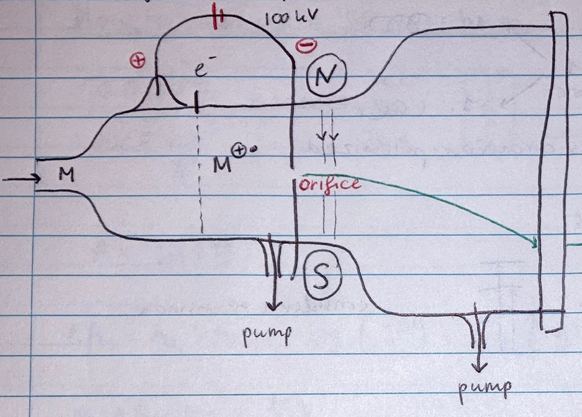 100 kV
⊕
⊖
e⁻
N
M
M⊕•
orifice
S
pump
pump